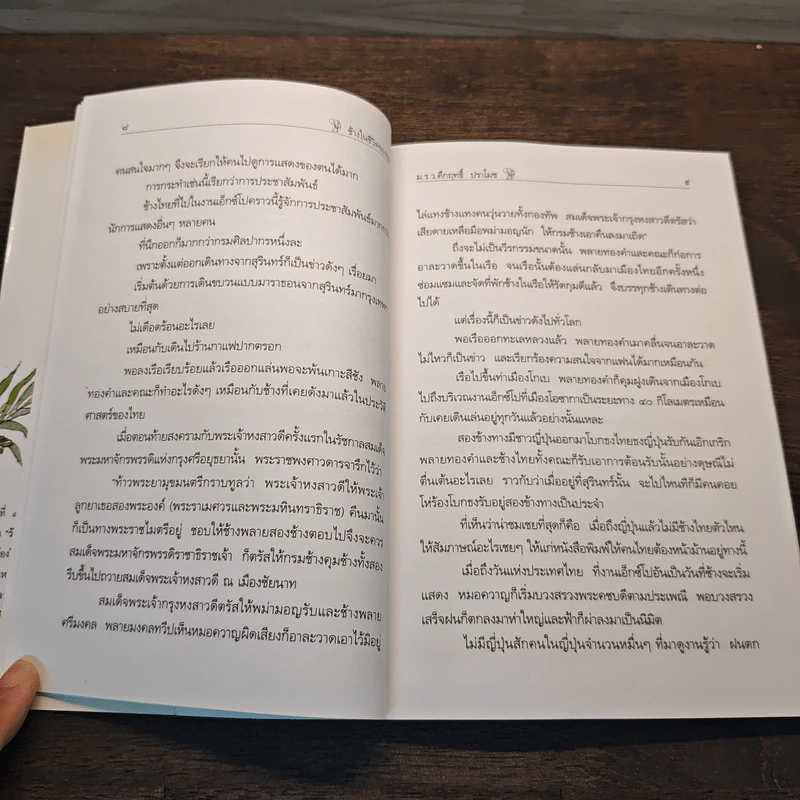 ๘
ช้างในชีวิต
คนสนใจมากๆ จึงจะเรียกให้คนไปดูการแสดงของตนได้มาก
การกระทำเช่นนี้เรียกว่าการประชาสัมพันธ์
ช้างไทยที่ไปในงานเอ็กซ์โปคราวนี้รู้จักการประชาสัมพันธ์มากกว่า
นักการแสดงอื่นๆ หลายคน
ที่นึกออกก็มากกว่ากรมศิลปากรหนึ่งละ
เพราะตั้งแต่ออกเดินทางจากสุรินทร์ก็เป็นข่าวดังๆ เรื่อยมา
เริ่มต้นด้วยการเดินขบวนแบบมาราธอนจากสุรินทร์มากรุงเทพฯ
อย่างสบายที่สุด
ไม่เดือดร้อนอะไรเลย
เหมือนกับเดินไปร้านกาแฟปากตรอก
พอลงเรือเรียบร้อยแล้วเรือออกแล่นพอจะพ้นเกาะสีชัง พลาย
ทองคำและคณะก็ทำอะไรดังๆ เหมือนกับช้างที่เคยดังมาแล้วในประวัติ
ศาสตร์ของไทย
เมื่อตอนท้ายสงครามกับพระเจ้าหงสาวดีครั้งแรกในรัชกาลสมเด็จ
พระมหาจักรพรรดิแห่งกรุงศรีอยุธยานั้น พระราชพงศาวดารจารึกไว้ว่า
"ท้าวพระยามุขมนตรีกราบทูลว่า พระเจ้าหงสาวดีให้พระเจ้า
ลูกยาเธอสองพระองค์ (พระราเมศวรและพระมหินทราธิราช) คืนมานั้น
ก็เป็นทางพระราชไมตรีอยู่ ชอบให้ช้างพลายสองช้างตอบไปจึงจะควร
สมเด็จพระมหาจักรพรรดิราชาธิราชเจ้า ก็ตรัสให้กรมช้างคุมช้างทั้งสอง
รีบขึ้นไปถวายสมเด็จพระเจ้าหงสาวดี ณ เมืองชัยนาท
สมเด็จพระเจ้ากรุงหงสาวดีตรัสให้พม่ามอญรับและช้างพลาย
ศรีมงคล พลายมงคลทวีปเห็นหมอควาญผิดเสียงก็อาละวาดเอาไว้มิอยู่
ม.ร.ว.คึกฤทธิ์ ปราโมช
๙
ไล่แทงช้างแทงคนวุ่นวายทั้งกองทัพ สมเด็จพระเจ้ากรุงหงสาวดีตรัสว่า
เสียดายเหลือมือพม่ามอญนัก ให้กรมช้างเอาคืนลงมาเถิด"
ถึงจะไม่เป็นวีรกรรมขนาดนั้น พลายทองคำและคณะก็ก่อการ
อาละวาดขึ้นในเรือ จนเรือนั้นต้องแล่นกลับมาเมืองไทยอีกครั้งหนึ่ง
ซ่อมแซมและจัดที่พักช้างในเรือให้รัดกุมดีแล้ว จึงบรรทุกช้างเดินทางต่อ
ไปได้
แต่เรื่องนี้ก็เป็นข่าวดังไปทั่วโลก
พอเรือออกทะเลหลวงแล้ว พลายทองคำเมาคลื่นจนอาละวาด
ไม่ไหวก็เป็นข่าว และเรียกร้องความสนใจจากแฟนได้มากเหมือนกัน
เรือไปขึ้นท่าเมืองโกเบ พลายทองคำก็คุมฝูงเดินจากเมืองโกเบ
ไปถึงบริเวณงานเอ็กซ์โปที่เมืองโอซากาเป็นระยะทาง ๔๐ กิโลเมตรเหมือน
กับเคยเดินเล่นอยู่ทุกวันแล้วอย่างนั้นแหละ
สองข้างทางมีชาวญี่ปุ่นออกมาโบกธงไทยธงญี่ปุ่นรับกันเอิกเกริก
พลายทองคำและช้างไทยทั้งคณะก็รับเอาการต้อนรับนั้นอย่างดุษณีไม่
ตื่นเต้นอะไรเลย ราวกับว่าเมื่ออยู่ที่สุรินทร์นั้น จะไปไหนทีก็มีคนคอย
โห่ร้องโบกธงรับอยู่สองข้างทางเป็นประจำ
ที่เห็นว่าน่าชมเชยที่สุดก็คือ เมื่อถึงญี่ปุ่นแล้วไม่มีช้างไทยตัวไหน
ให้สัมภาษณ์อะไรเชยๆ ให้แก่หนังสือพิมพ์ให้คนไทยต้องหน้าม้านอยู่ทางนี้
เมื่อถึงวันแห่งประเทศไทย ที่งานเอ็กซ์โปอันเป็นวันที่ช้างจะเริ่ม
แสดง หมอควาญก็เริ่มบวงสรวงพระคชบดีตามประเพณี พอบวงสรวง
เสร็จฝนก็ตกลงมาห่าใหญ่และฟ้าก็ผ่าลงมาเป็นนิมิต
ไม่มีญี่ปุ่นสักคนในญี่ปุ่นจำนวนหมื่นๆ ที่มาดูงานรู้ว่า ฝนตก